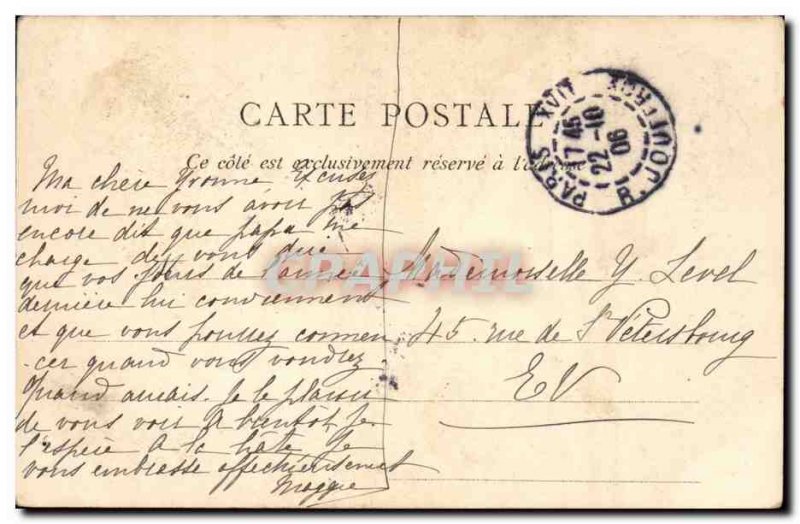 CARTE POSTALE
Ce côté est exclusivement réservé à l'
PARIS XVII
17 45
22 - 10
06
R. JOUFFROY
Ma chère Yvonne Excuses
moi de ne vous avoir pas
encore dit que papa me
charge de vous dire
que vos jours de l'année
dernière lui conviennent
et que vous pouvez commen
-cer quand vous voudrez
Quand aurais-je le plaisir
de vous voir à bientôt je
l'espère à la hâte je
vous embrasse affectueusement
Maggie
Mademoiselle Y. Level
45 rue de St Pétersbourg
EV
CPAPHIL